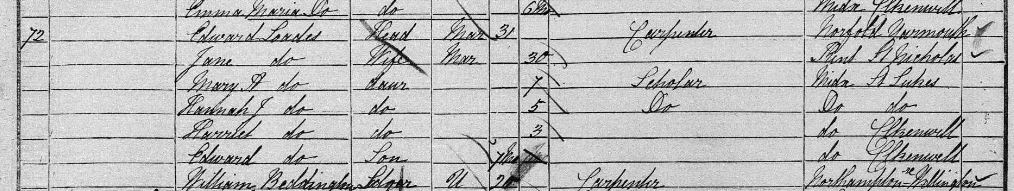 Emma Maria Do do 6 Mo Midx Clkenwell
72 Edward Loades Head Mar 31 Carpenter Norfolk Yarmouth
Jane do Wife Mar 30 Kent St Nicholas
Mary A do daur 7 Scholar Midx St Lukes
Hannah J do do 5 Do Do do
Harriet do do 3 do Clkenwell
Edward do Son 7 Mo do Clkenwell
William Beddington Lodger U 20 Carpenter Northampton